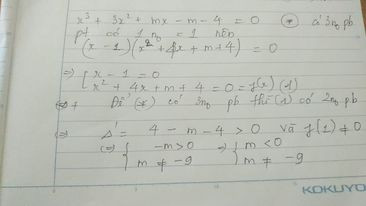 x³ + 3x² + mx - m - 4 = 0 (*) có 3n₀ pb
pt có 1 n₀ = 1 nên
(x - 1)(x² + 4x + m + 4) = 0
=> [ x - 1 = 0
x² + 4x + m + 4 = 0 = f(x) (1)
Để (*) có 3n₀ pb thì (1) có 2n₀ pb
=> Δ' = 4 - m - 4 > 0 và f(1) ≠ 0
<=> { -m > 0 => { m < 0
m ≠ -9 m ≠ -9
KOKUYO